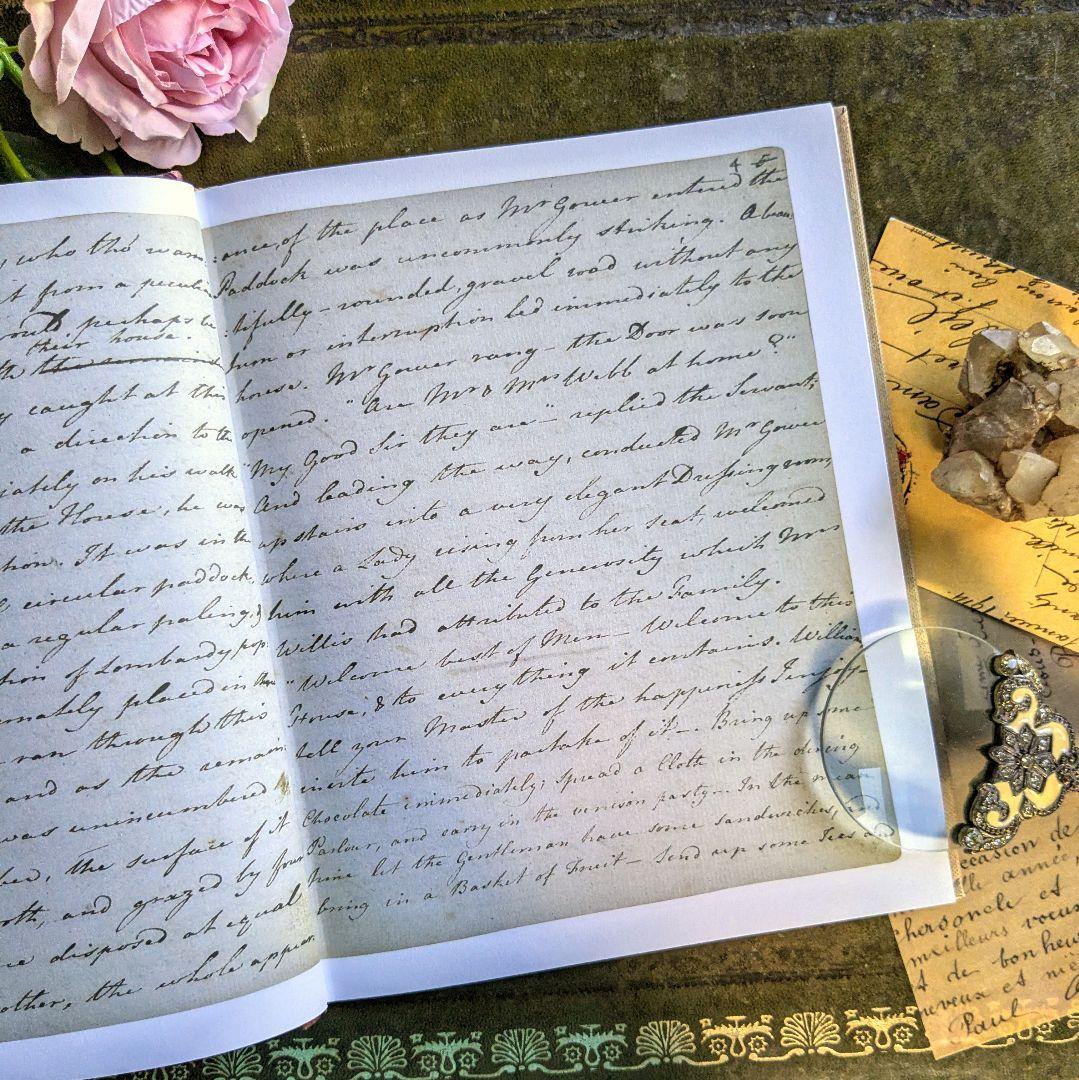 who tho' warm
t from a peculi
could perhaps be
their house.
the
y caught at this
a direction to the
iately on his walk
the House, he was
tion. It was in the
circular paddock,
a regular paling,
tion of Lombardy pop:
nately placed in
ran through this
and as the remain:
was unincumbered
bed, the surface of it
oth, and grazed by four
re disposed at equal
other, the whole appear
4 5
:ance, of the place as Mr Gower entered the
Paddock was uncommonly striking. A beau:
:tifully-rounded, gravel road without any
turn or interruption led immediately to the
house. Mr Gower rang - the Door was soon
opened. "Are Mr & Mrs Webb at home?"
"My Good Sir they are" - replied the Servant;
And leading the way, conducted Mr Gower
up stairs into a very elegant Dressing room,
where a Lady rising from her seat, welcomed
him with all the Generosity which Mrs
Willis had attributed to the Family.
"Welcome best of Men - Welcome to this
House, & to everything it contains. William,
tell your Master of the happiness I enjoy -
invite him to partake of it -. Bring up some
Chocolate immediately; Spread a Cloth in the dining
Parlour, and carry in the venison pasty -. In the mean
time let the Gentleman have some sandwiches, and
bring in a Basket of Fruit - Send up some Ices and
occasion de
lle année,
personele et
meilleurs voeux
t de bonheur
neveux et niè
Paul